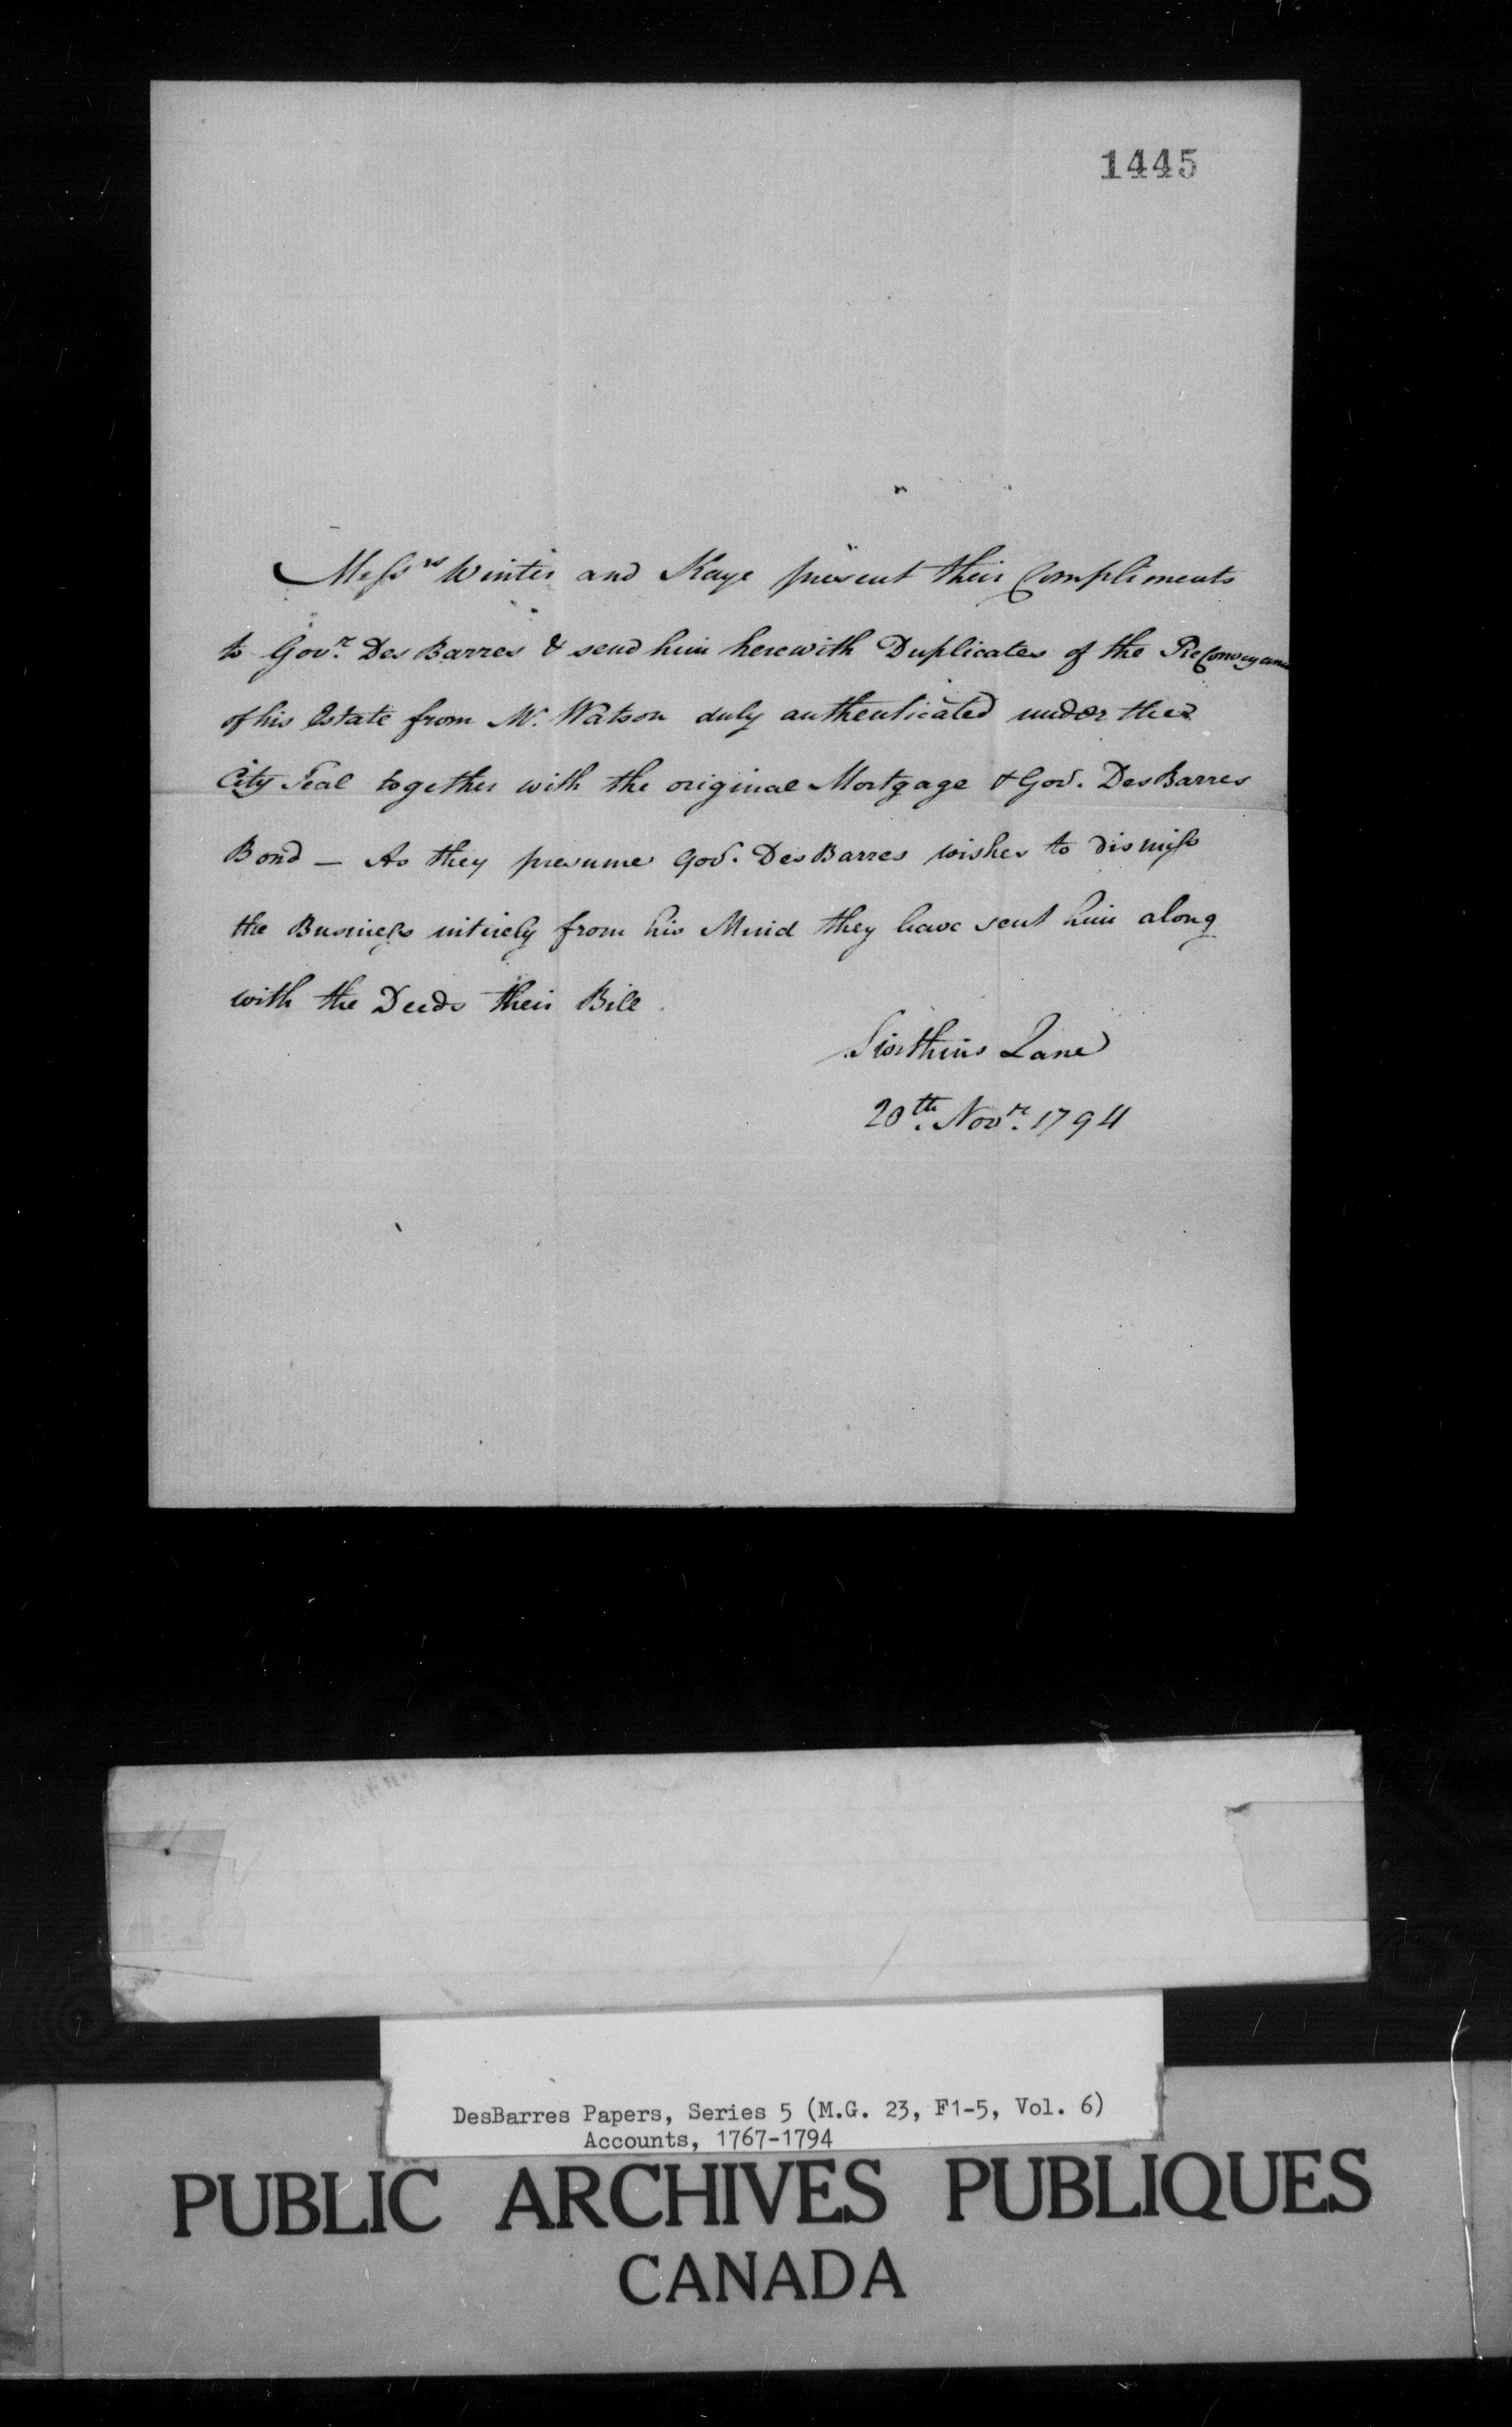 1445
Messrs Winter and Kaye present their Compliments
to Govr. Des Barres & send him herewith Duplicates of the ReConveyance
of his Estate from Mr. Watson duly authenticated under the
City Seal together with the original Mortgage & Gov. DesBarres
Bond — As they presume Gov. DesBarres wishes to dismiss
the Business intirely from his Mind they have sent him along
with the Deeds their Bill.
Swithins Lane
20th. Novr. 1794
DesBarres Papers, Series 5 (M.G. 23, F1-5, Vol. 6)
Accounts, 1767-1794
PUBLIC ARCHIVES PUBLIQUES
CANADA